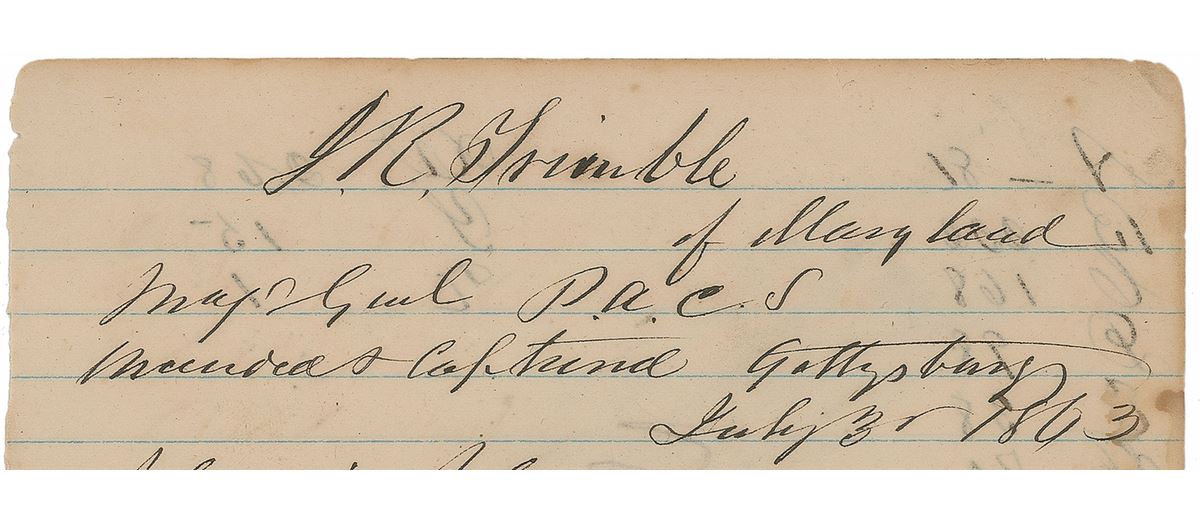 I. R. Trimble
of Maryland
Majr Genl P. A. C. S
Wounded & Captured Gettysburg
July 3d 1863